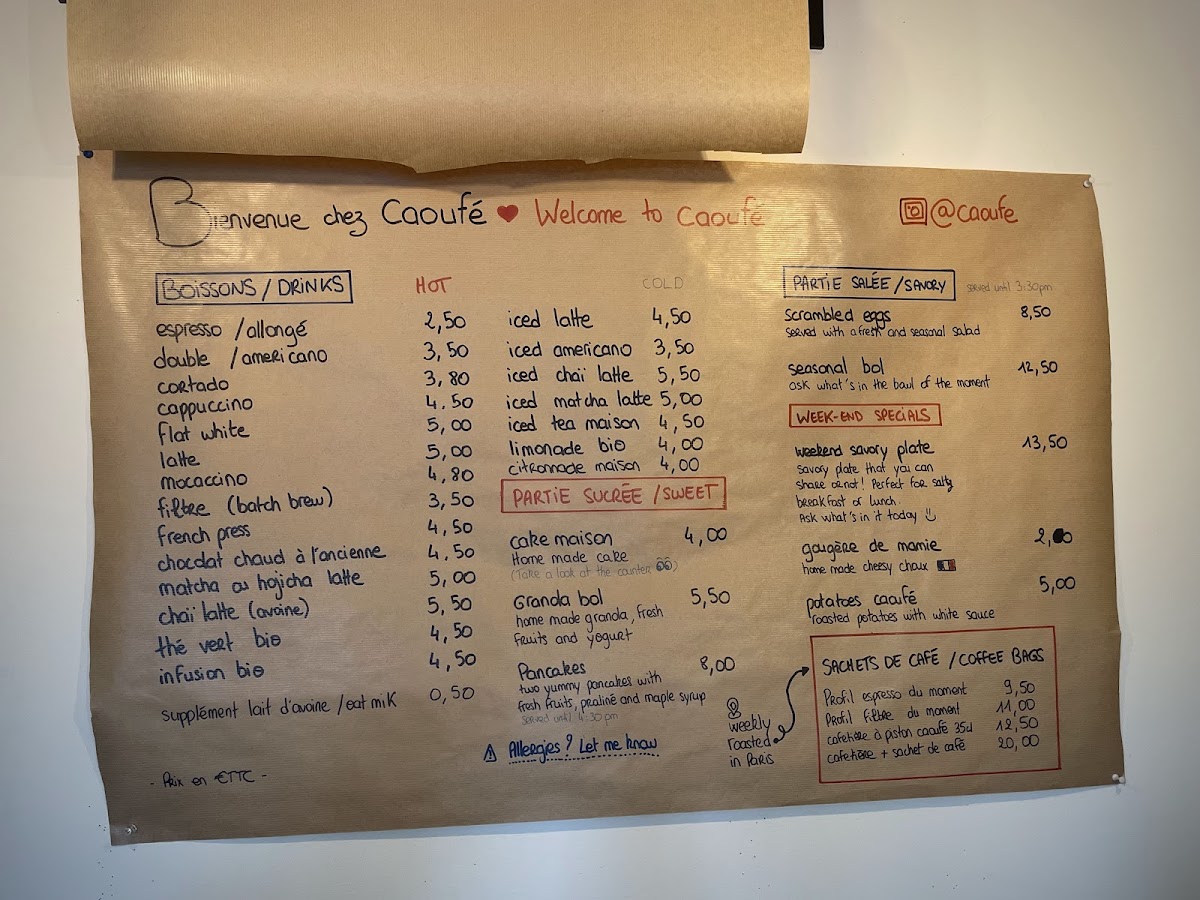 Bienvenue chez Caoufé ♥ Welcome to Caoufé
@caoufe
BOISSONS / DRINKS
HOT
espresso / allongé 2,50
double / americano 3,50
cortado 3,80
cappuccino 4,50
flat white 5,00
latte 5,00
mocaccino 4,80
filtre (batch brew) 3,50
french press 4,50
chocolat chaud à l'ancienne 4,50
matcha ou hojicha latte 5,00
chaï latte (avoine) 5,50
thé vert bio 4,50
infusion bio 4,50
supplément lait d'avoine / oat milk 0,50
- Prix en €TTC -
COLD
iced latte 4,50
iced americano 3,50
iced chaï latte 5,50
iced matcha latte 5,00
iced tea maison 4,50
limonade bio 4,00
citronnade maison 4,00
PARTIE SUCRÉE / SWEET
cake maison 4,00
Home made cake
(Take a look at the counter)
Granola bol 5,50
home made granola, fresh
fruits and yogurt
Pancakes 8,00
two yummy pancakes with
fresh fruits, praliné and maple syrup
served until 4:30 pm
⚠ Allergies ? Let me know
PARTIE SALÉE / SAVORY
served until 3:30pm
scrambled eggs 8,50
served with a fresh and seasonal salad
seasonal bol 12,50
ask what's in the bowl of the moment
WEEK-END SPECIALS
weekend savory plate 13,50
savory plate that you can
share or not! Perfect for salty
breakfast or lunch.
Ask what's in it today
gougère de mamie 2,
home made cheesy choux
potatoes caoufé 5,00
roasted potatoes with white sauce
weekly
roasted
in Paris
SACHETS DE CAFÉ / COFFEE BAGS
Profil espresso du moment 9,50
Profil filtre du moment 11,00
cafetière à piston caoufé 35cl 12,50
cafetière + sachet de café 20,00